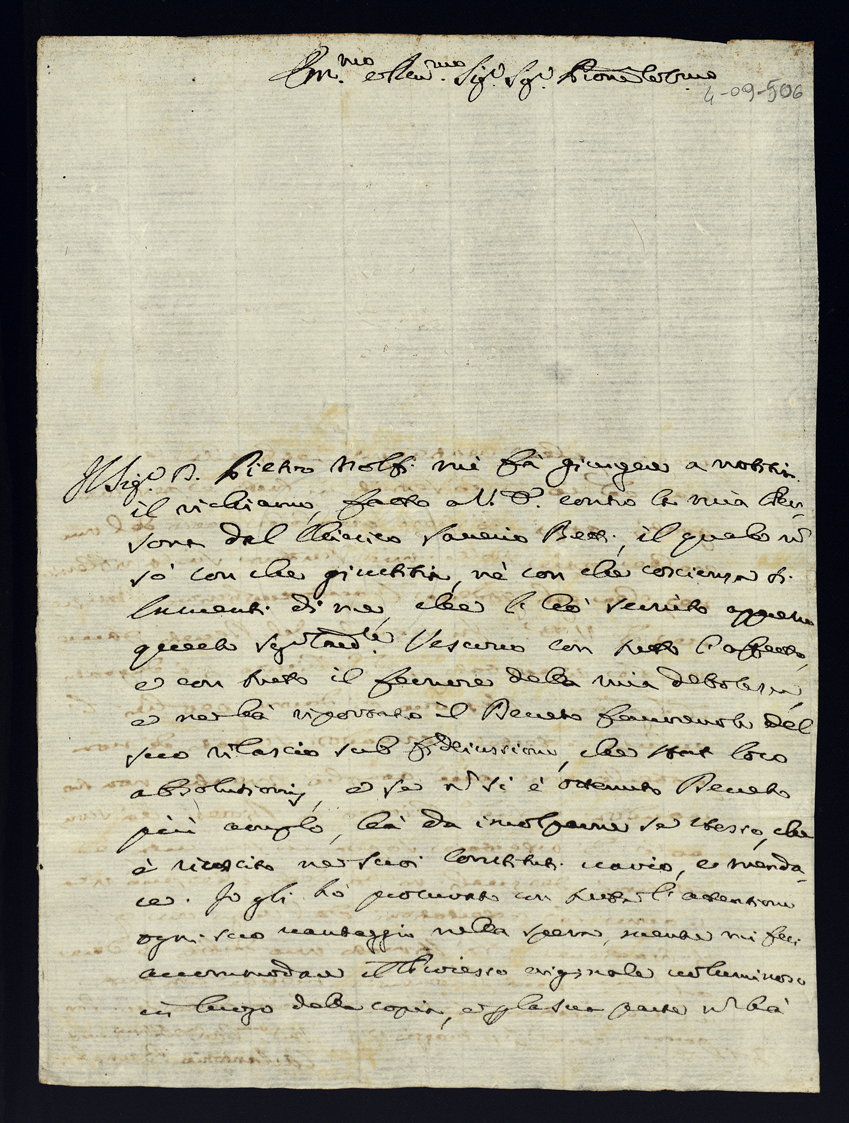 Em.mo e Rev.mo Sig.r Sig.r Pron
4-09-506
Il Sig.r D. Pietro Nolfi mi fà giungere a notitia
il richiamo, fatto a V. E. contro la mia Per-
sona dal Chierico Saverio Betti, il quale nò
sò con che giustitia, nè con che coscienza si
lamenti di me, che l'hò servito appresso
questo Vescovo con tutto l'affetto,
e con tutto il fervore della mia debolezza,
e ne hà riportato il Decreto favorevole del
suo rilascio sub fideiussione, che stat loco
absolutionis, e se nò si è ottenuto Decreto
più amplo, hà da incolparne se stesso, che
è riuscito ne suoi Constituti vario, e menda-
ce. Io gli hò procurato con tutta l'attentione
ogni suo vantaggio nella spesa, mentre mi feci
accommodare il Processo originale voluminoso
in luogo della copia, e p la sua parte nò hà